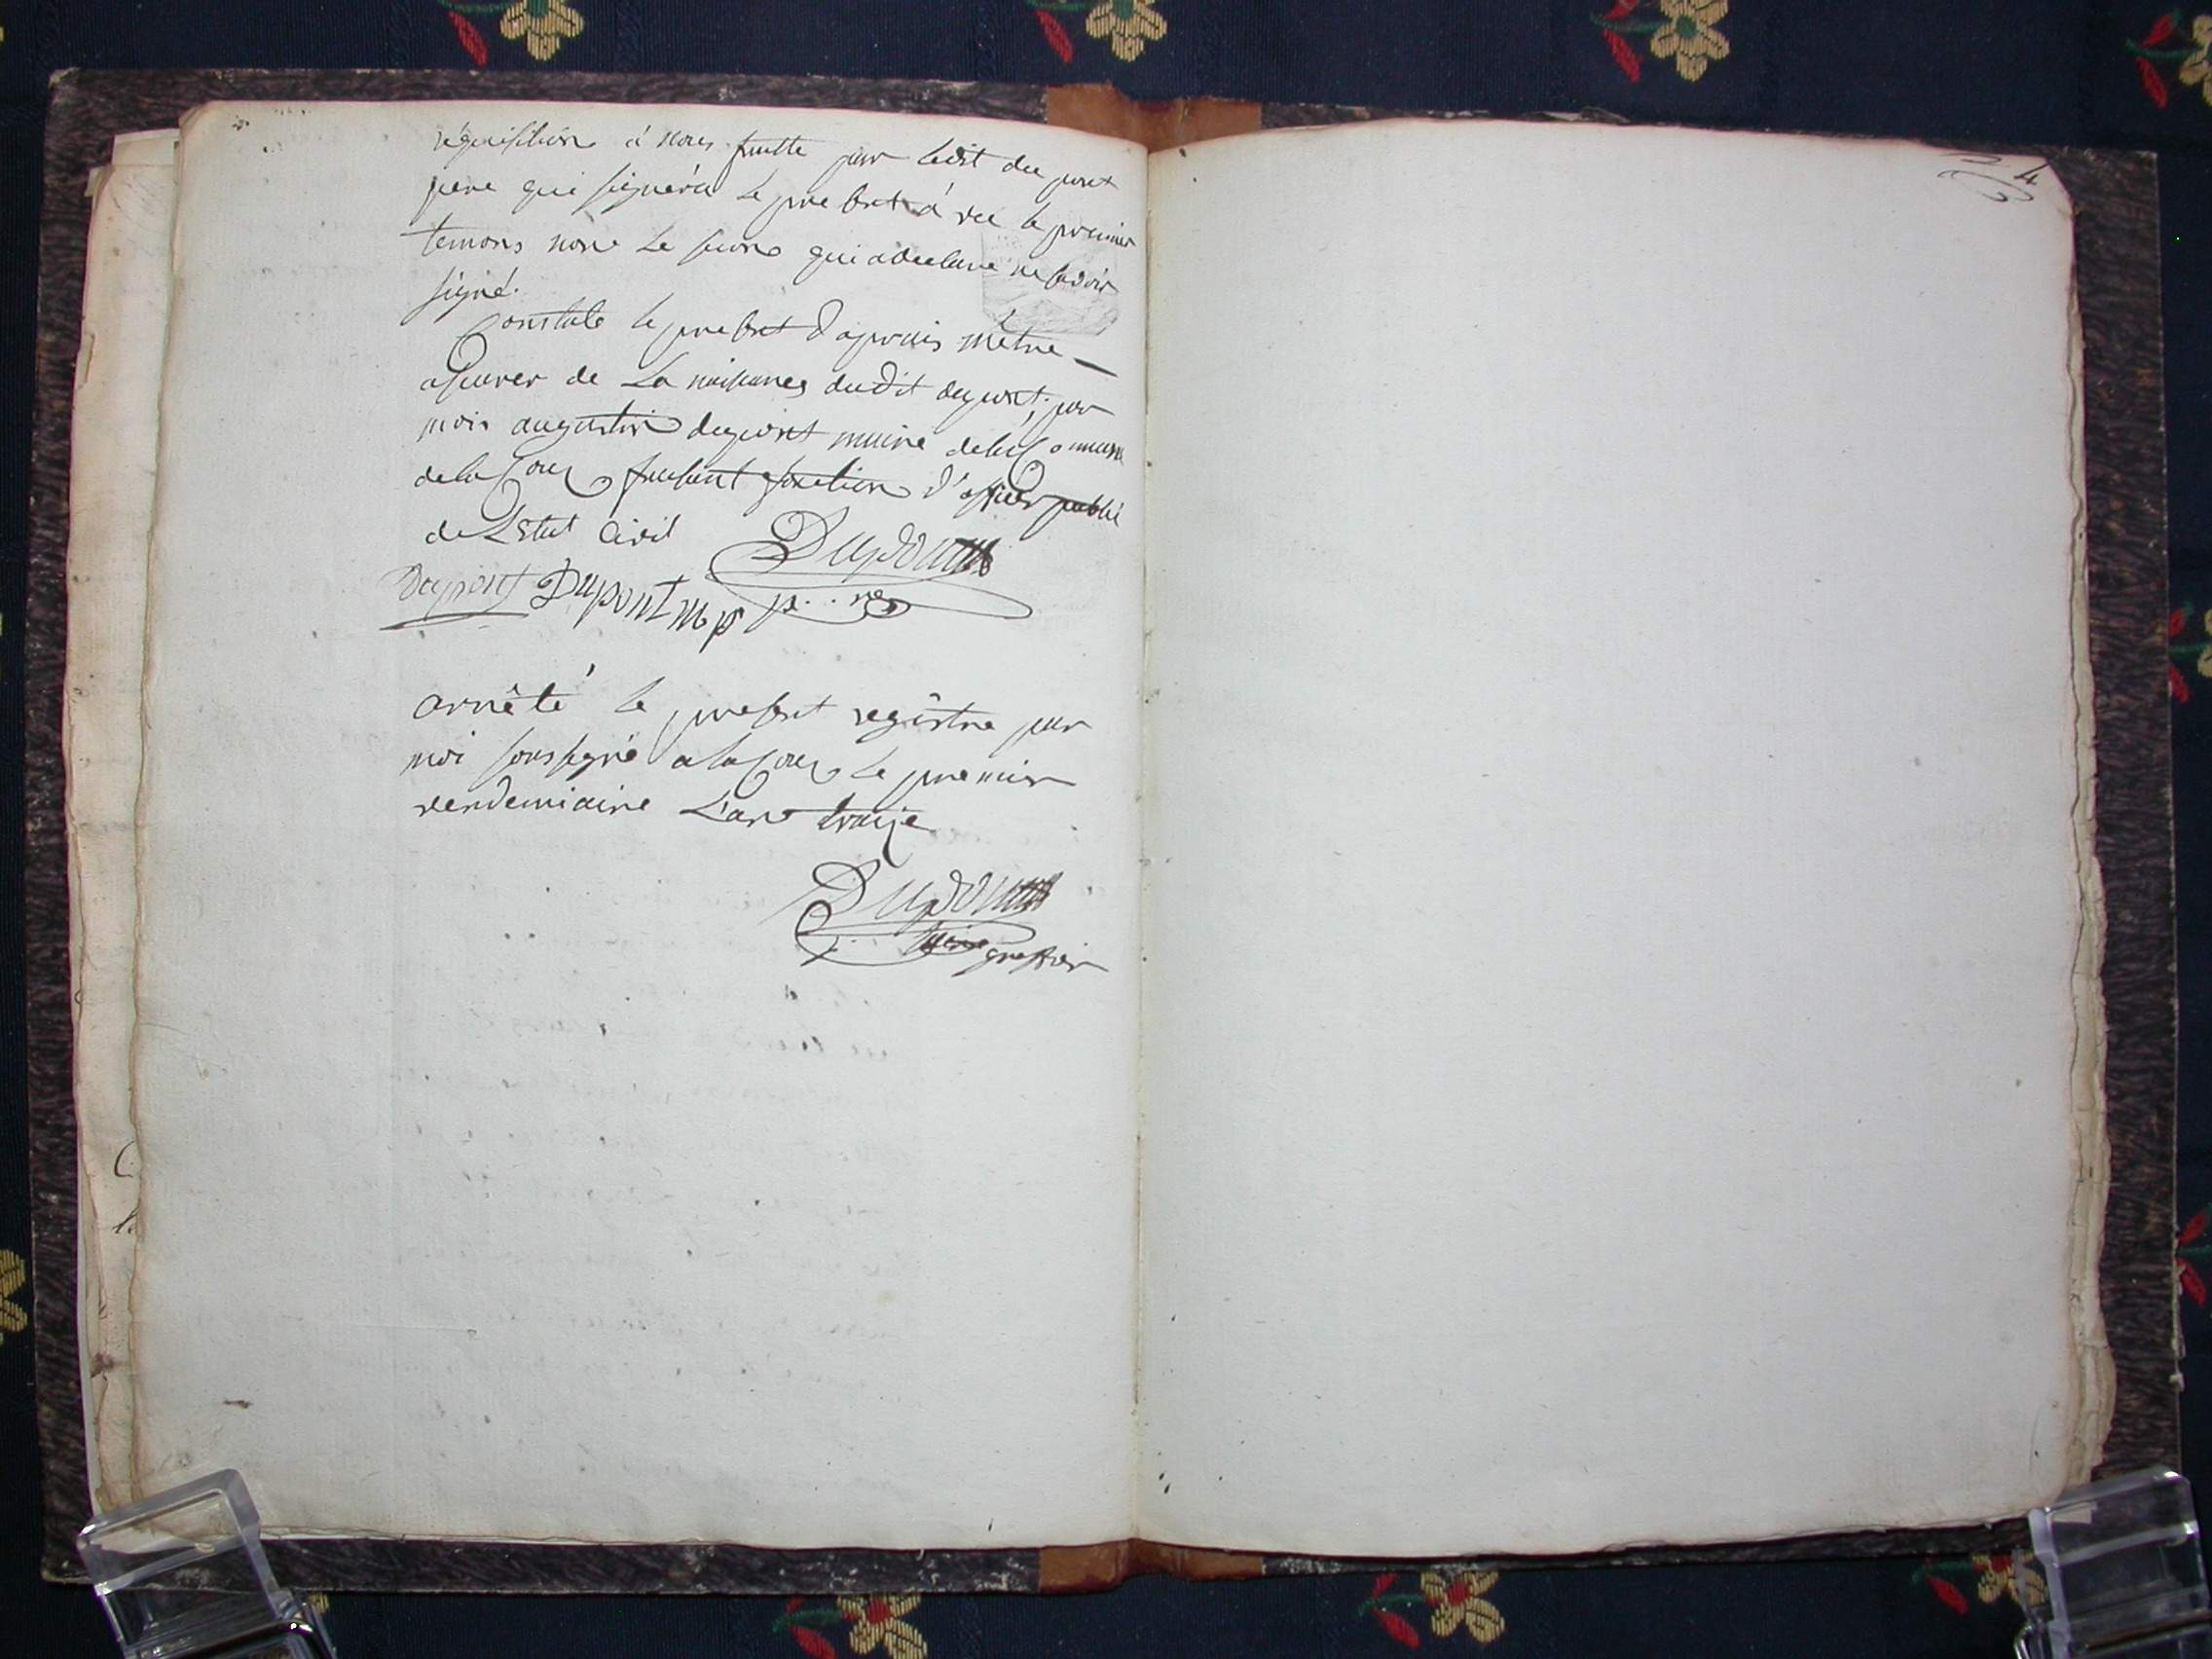 réquisition à nous faitte par ledit du pont
pere qui signéra le present avec le premier
temons non le second qui a declaré ne savoir
signé.
Constaté le present d'aprais mètre
assurer de la naissance dudit dupont, par
mois augustin dupont maire de la Commune
de lasCoux faisant fonction d'officier public
de L'Etat Civil Dupont
Dupont Dupont mp
arrêté le present registre par
moi soussigné a lasCoux le premier
vendemiaire L'an traize
Dupont
greffier
4